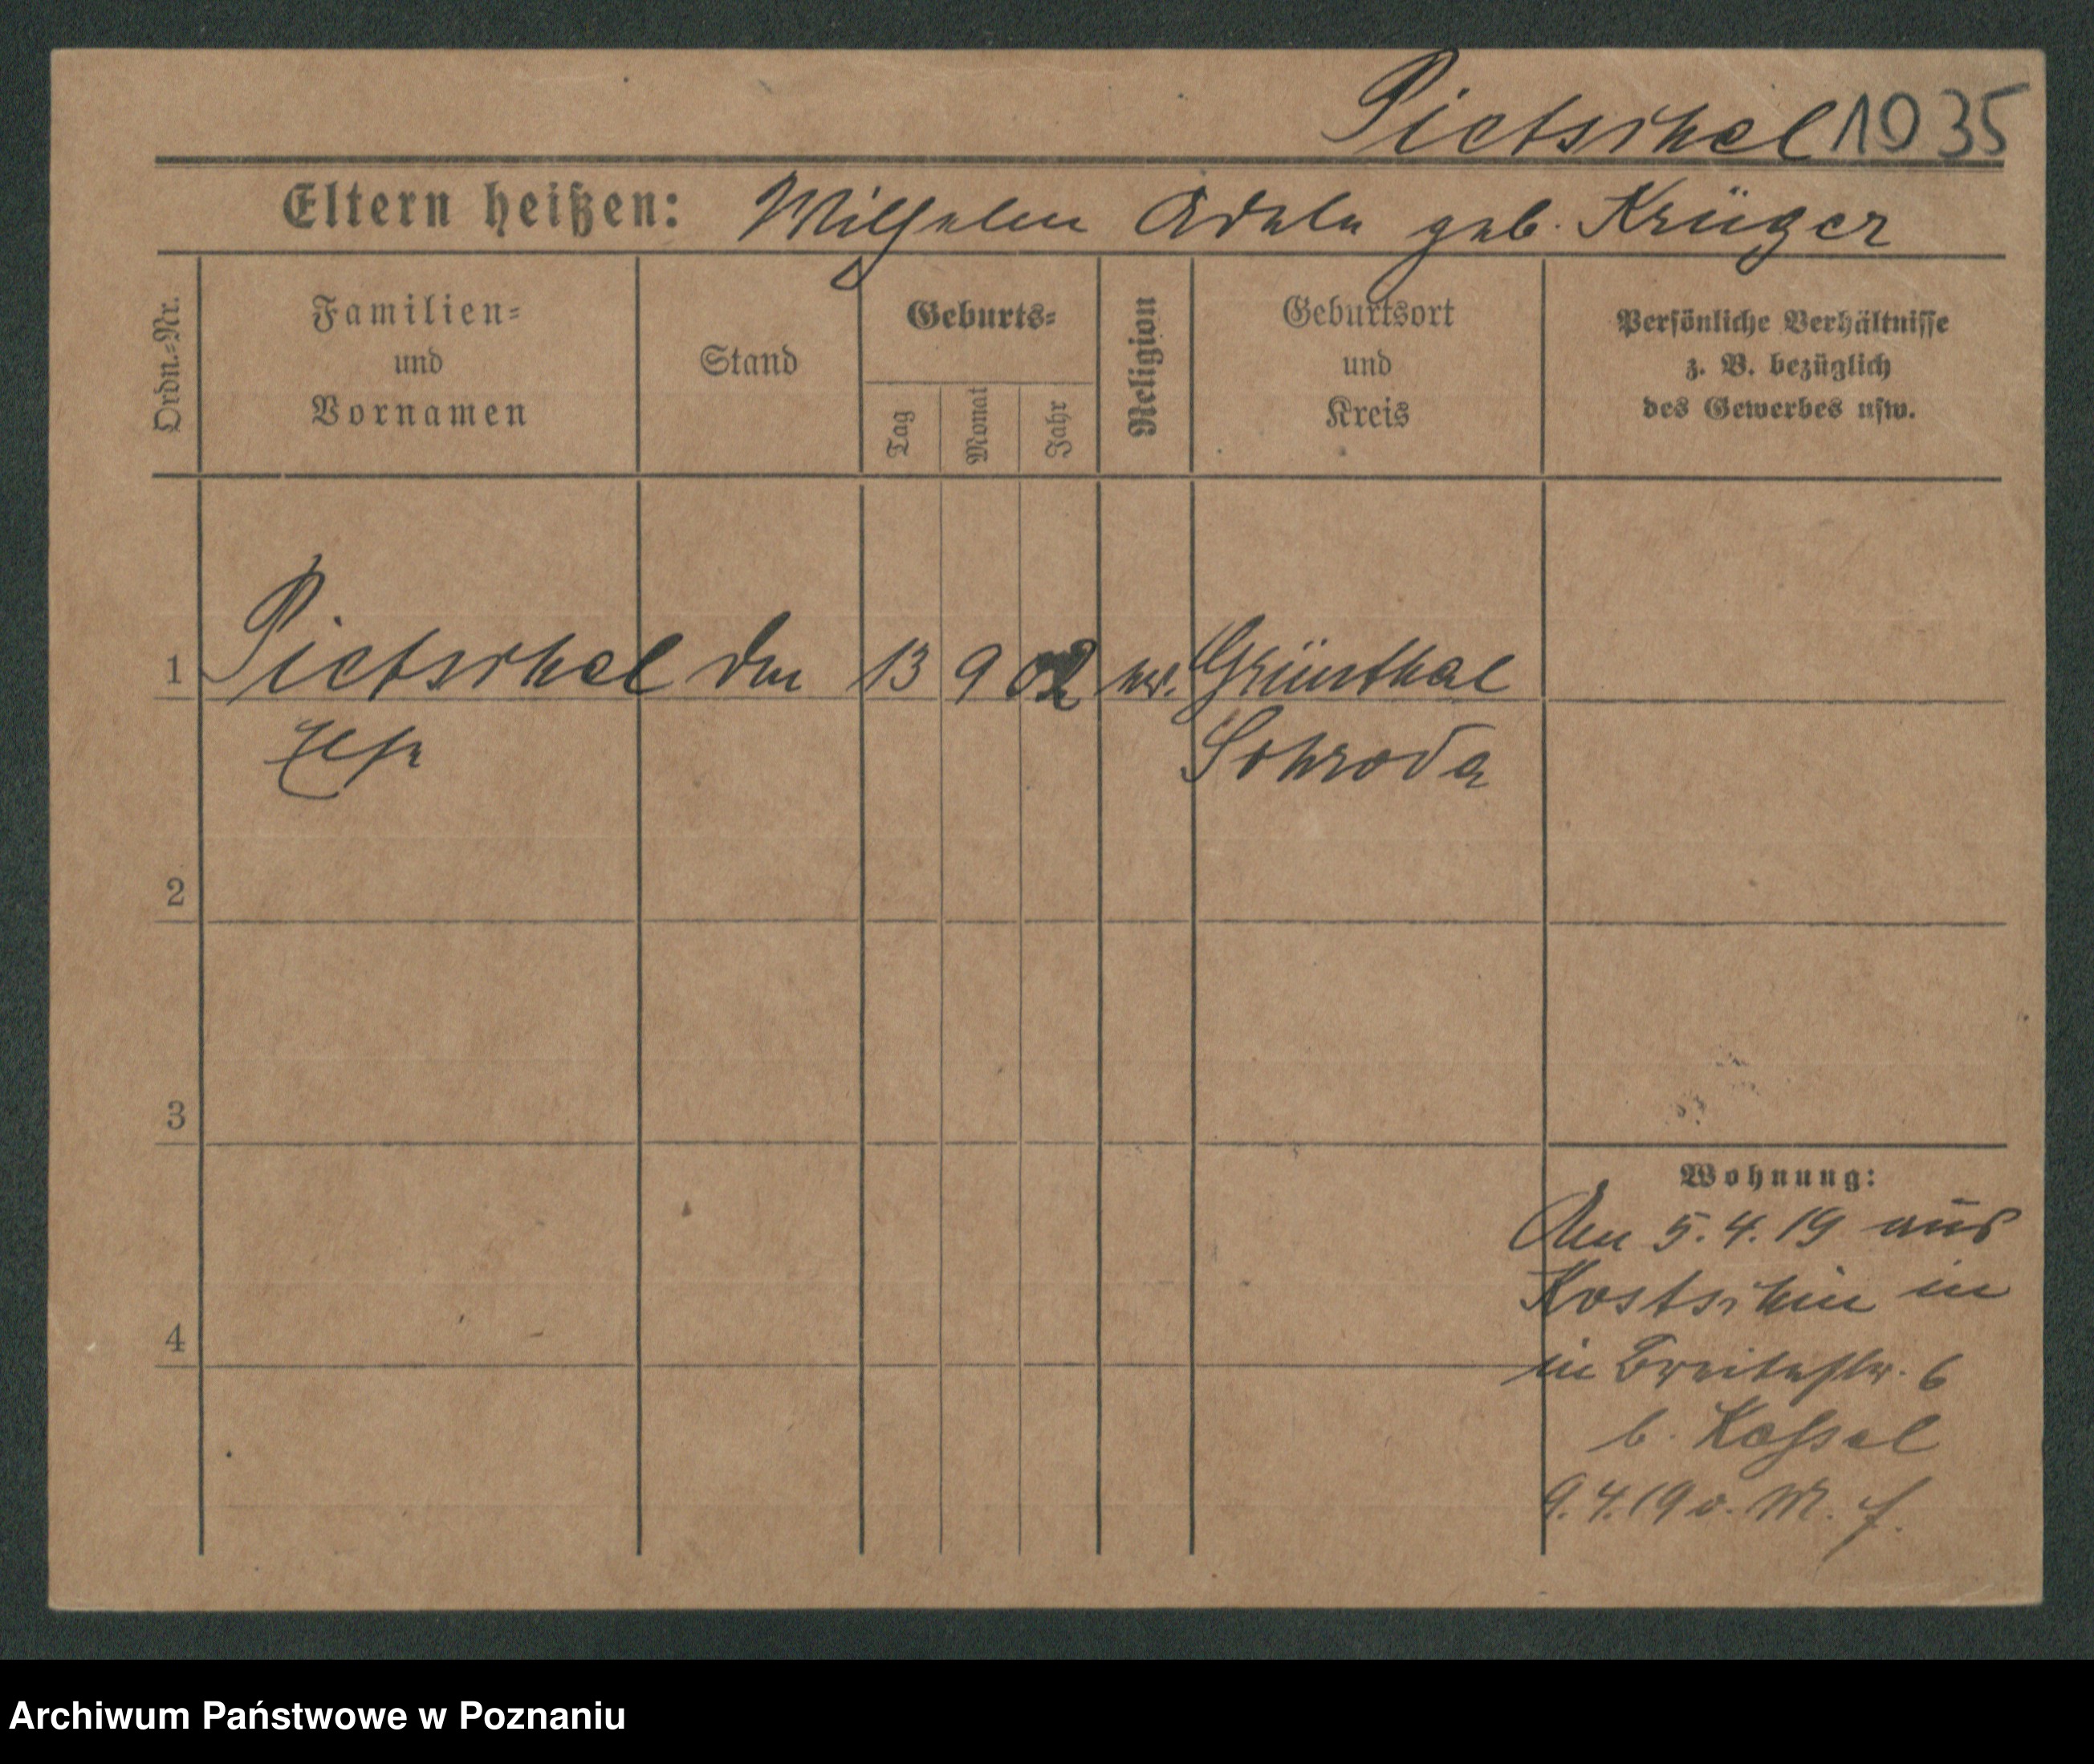 Pietschel 1035
Eltern heißen: Wilhelm Adele geb. Krüger
Ordn.-Nr.
Familien-
und
Vornamen
Stand
Geburts-
Tag
Monat
Jahr
Religion
Geburtsort
und
Kreis
Persönliche Verhältnisse
z. B. bezüglich
des Gewerbes usw.
1 Pietschel 13 9 02 Grünthal
Schroda
2
3
4
Wohnung:
Den 5.4.19 aus
Kostschin in
in Breitestr. 6
b. Kassel
9.4.19 v. M.
Archiwum Państwowe w Poznaniu